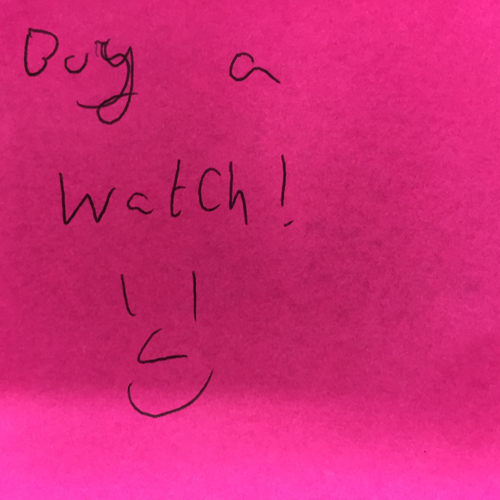 Buy a
Watch!